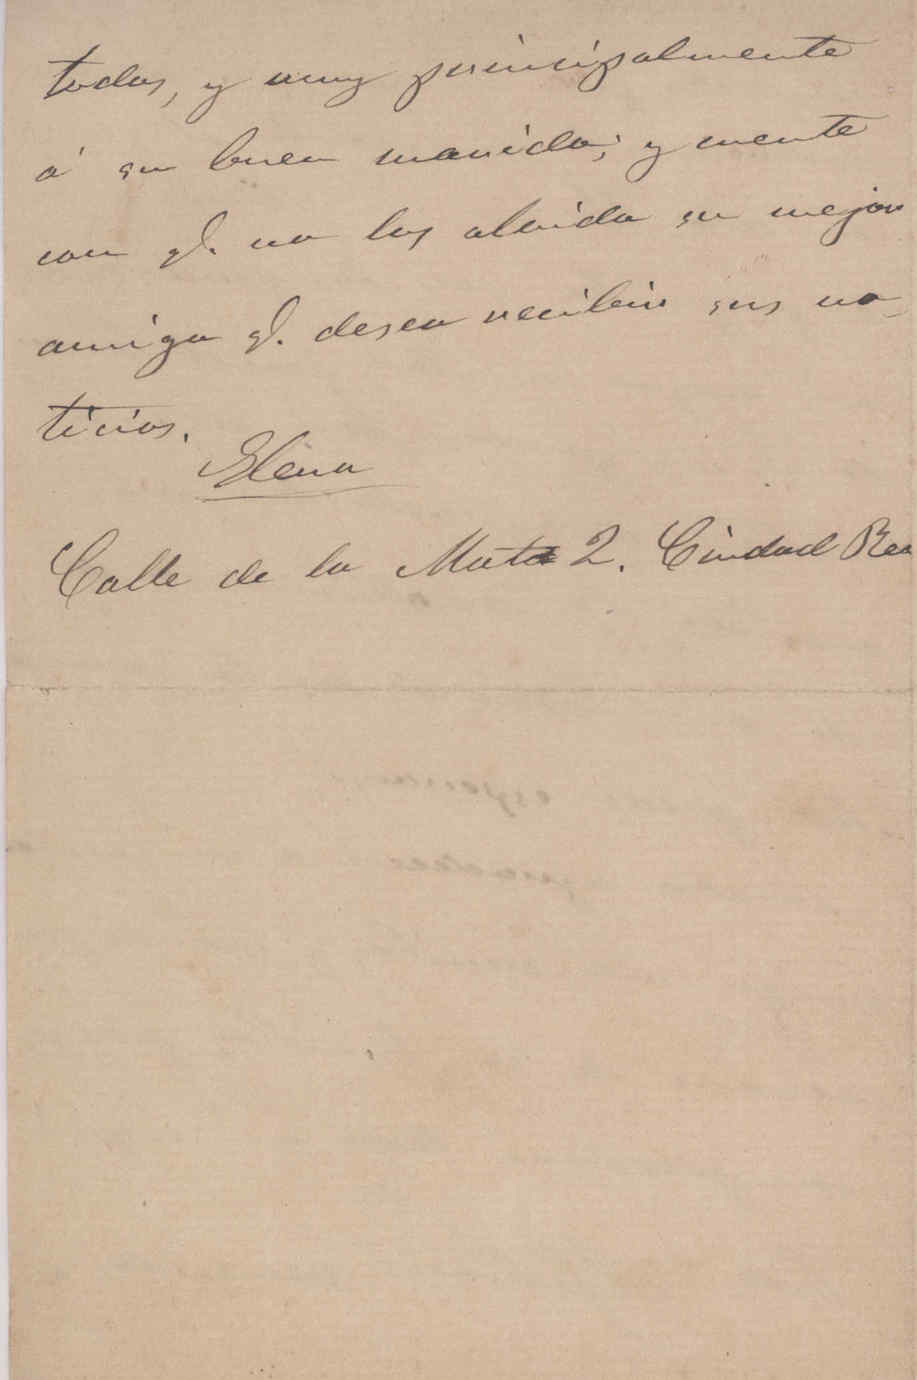 todos, y muy principalmente
á su buen marido; y cuente
con q. no los olvida su mejor
amiga q. desea recibir sus no-
ticias.
Elena
Calle de la Mata 2. Ciudad Rea